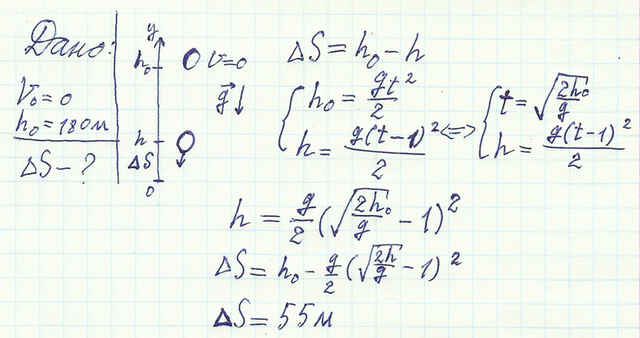 Дано:
V₀ = 0
h₀ = 180 м
ΔS - ?
y
h₀
V = 0
g⃗ ↓
h
ΔS
0
ΔS = h₀ - h
{ h₀ = gt²/2
h = g(t-1)²/2
<=> { t = √(2h₀/g)
h = g(t-1)²/2
h = g/2 (√(2h₀/g) - 1)²
ΔS = h₀ - g/2 (√(2h/g) - 1)²
ΔS = 55 м